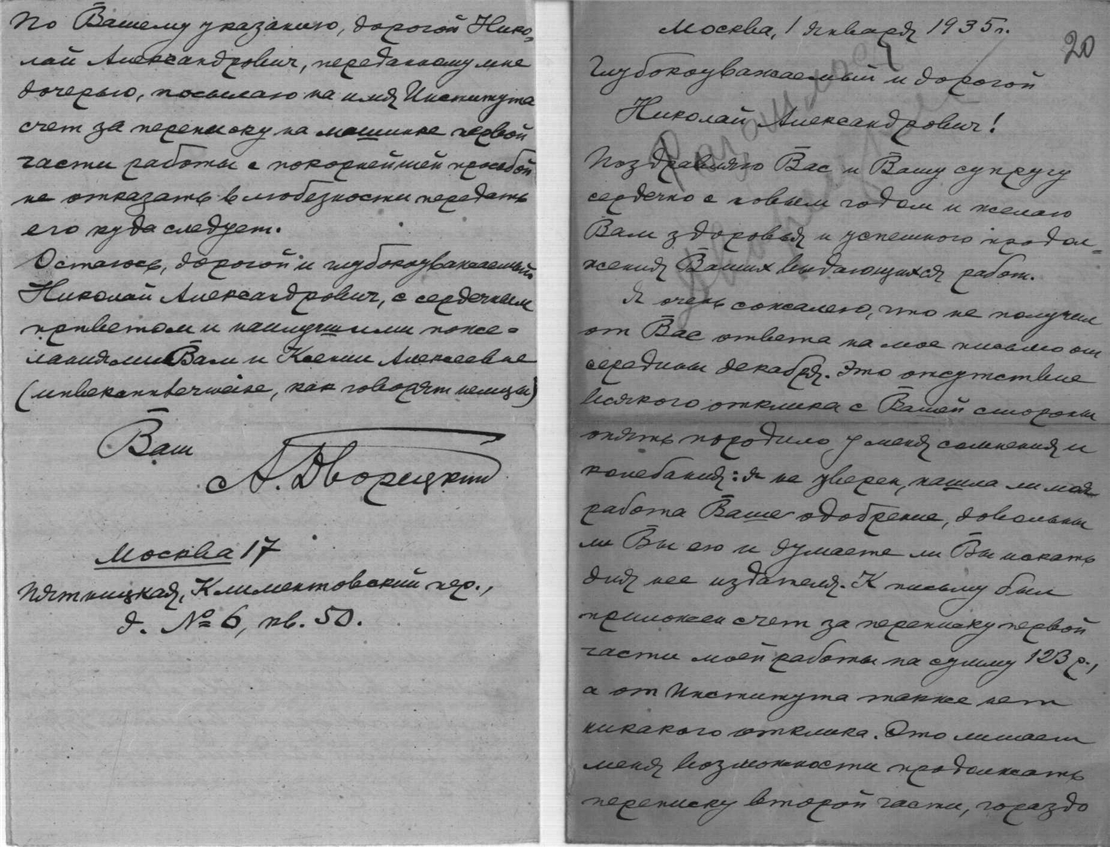 По Вашему указанию, дорогой Нико-
лай Александрович, переданному мне
дочерью, посылаю на имя Института
счет за переписку на машинке первой
части работы с покорнейшей просьбой
не отказать в любезности передать
его куда следует.
Остаюсь, дорогой и глубокоуважаемый
Николай Александрович, с сердечным
приветом и наилучшими поже-
ланиями Вам и Ксении Алексеевне
(unbekannterweise, как говорят немцы)
Ваш
А. Дворецкий
Москва 17
Пятницкая, Климентовский пер.,
д. № 6, кв. 50.
20
Москва, 1 января 1935 г.
Глубокоуважаемый и дорогой
Николай Александрович!
Поздравляю Вас и Вашу супругу
сердечно с новым годом и желаю
Вам здоровья и успешного продол-
жения Ваших выдающихся работ.
Я очень сожалею, что не получил
от Вас ответа на мое письмо от
середины декабря. Это отсутствие
всякого отклика с Вашей стороны
опять породило у меня сомнения и
колебания: я не уверен, нашла ли моя
работа Ваше одобрение, довольны
ли Вы ею и думаете ли Вы искать
для нее издателя. К письму был
приложен счет за переписку первой
части моей работы на сумму 123 р.,
а от Института также нет
никакого отклика. Это лишает
меня возможности продолжать
переписку второй части, гораздо